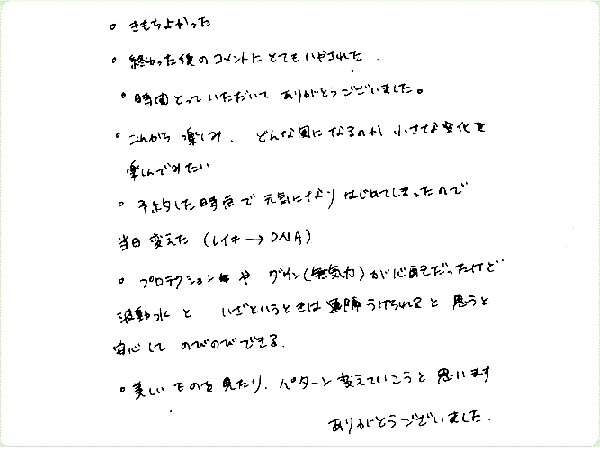 ○ きもちよかった
○ 終わった後のコメントにとてもいやされた.
○ 時間とっていただいて ありがとうございました。
○ これから楽しみ. どんな風になるのか 小さな変化を
楽しんでみたい
○ 予約した時点で 元気になりはじめてしまったので
当日変えた (レイキ→DNA)
○ プロテクションや ダウン(無気力)が心配だったけど
波動水と いざというときは遠隔うけられると思うと
安心して のびのびできる.
○ 美しいものを見たり, パターン変えていこうと思います
ありがとうございました.